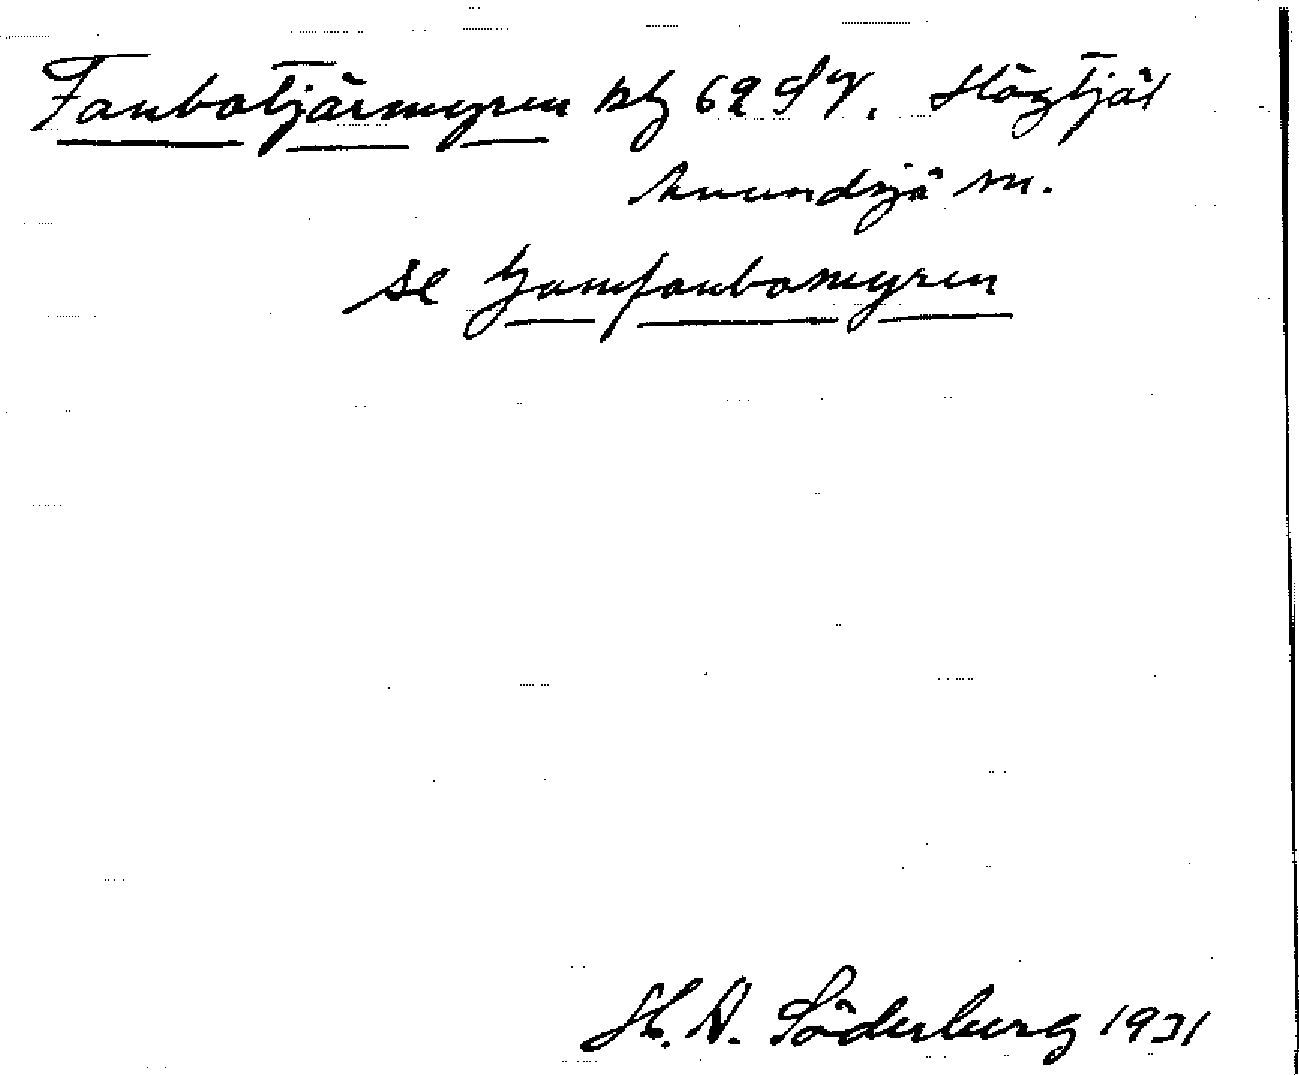 Fanbotjärnmyren blg 62 SV. Högtjäl
Anundsjö sn.
se Gamfanbomyren
H. A. Söderberg 1931